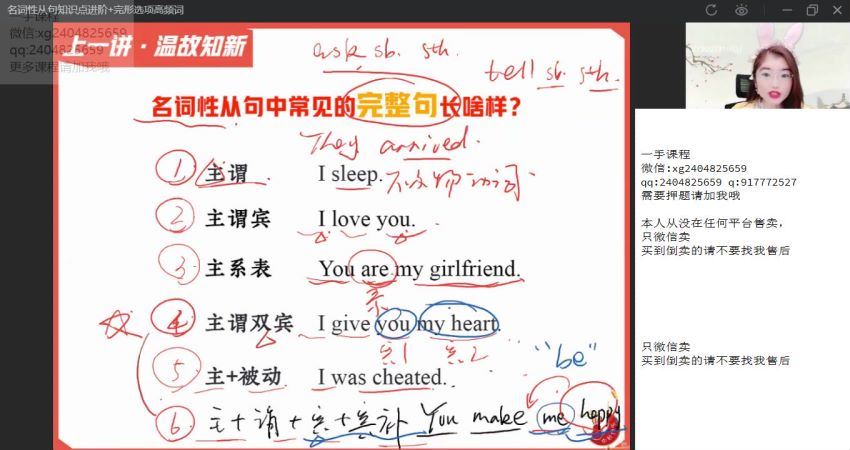 名词性从句知识点进阶+完形选项高频词
一手课程
微信:xg2404825659
qq:2404825659
更多课程请加我哦
上一讲·温故知新
ask sb. sth.
tell sb. sth.
名词性从句中常见的完整句长啥样？
They arrived.
① 主谓 I sleep. 不及物动词
② 主谓宾 I love you.
③ 主系表 You are my girlfriend.
系
④ 主谓双宾 I give you my heart.
宾1 宾2
"be"
⑤ 主+被动 I was cheated.
⑥ 主+谓+宾+宾补 You make me happy
一手课程
微信:xg2404825659
qq:2404825659 q:917772527
需要押题请加我哦
本人从没在任何平台售卖,
只微信卖
买到倒卖的请不要找我售后
只微信卖
买到倒卖的请不要找我售后